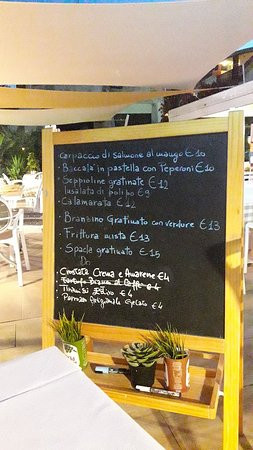 Carpaccio di salmone al mango €10
• Baccalà in pastella con Peperoni €10
• Seppioline gratinate €12
Insalata di polipo €9
• Calamarata €12
• Branzino Gratinato con verdure €13
• Frittura mista €13
• Spada gratinato €15
Crema e Amarene €4
Tartufo Bianco al Caffè €4
Tiramisù Estivo €4
€4